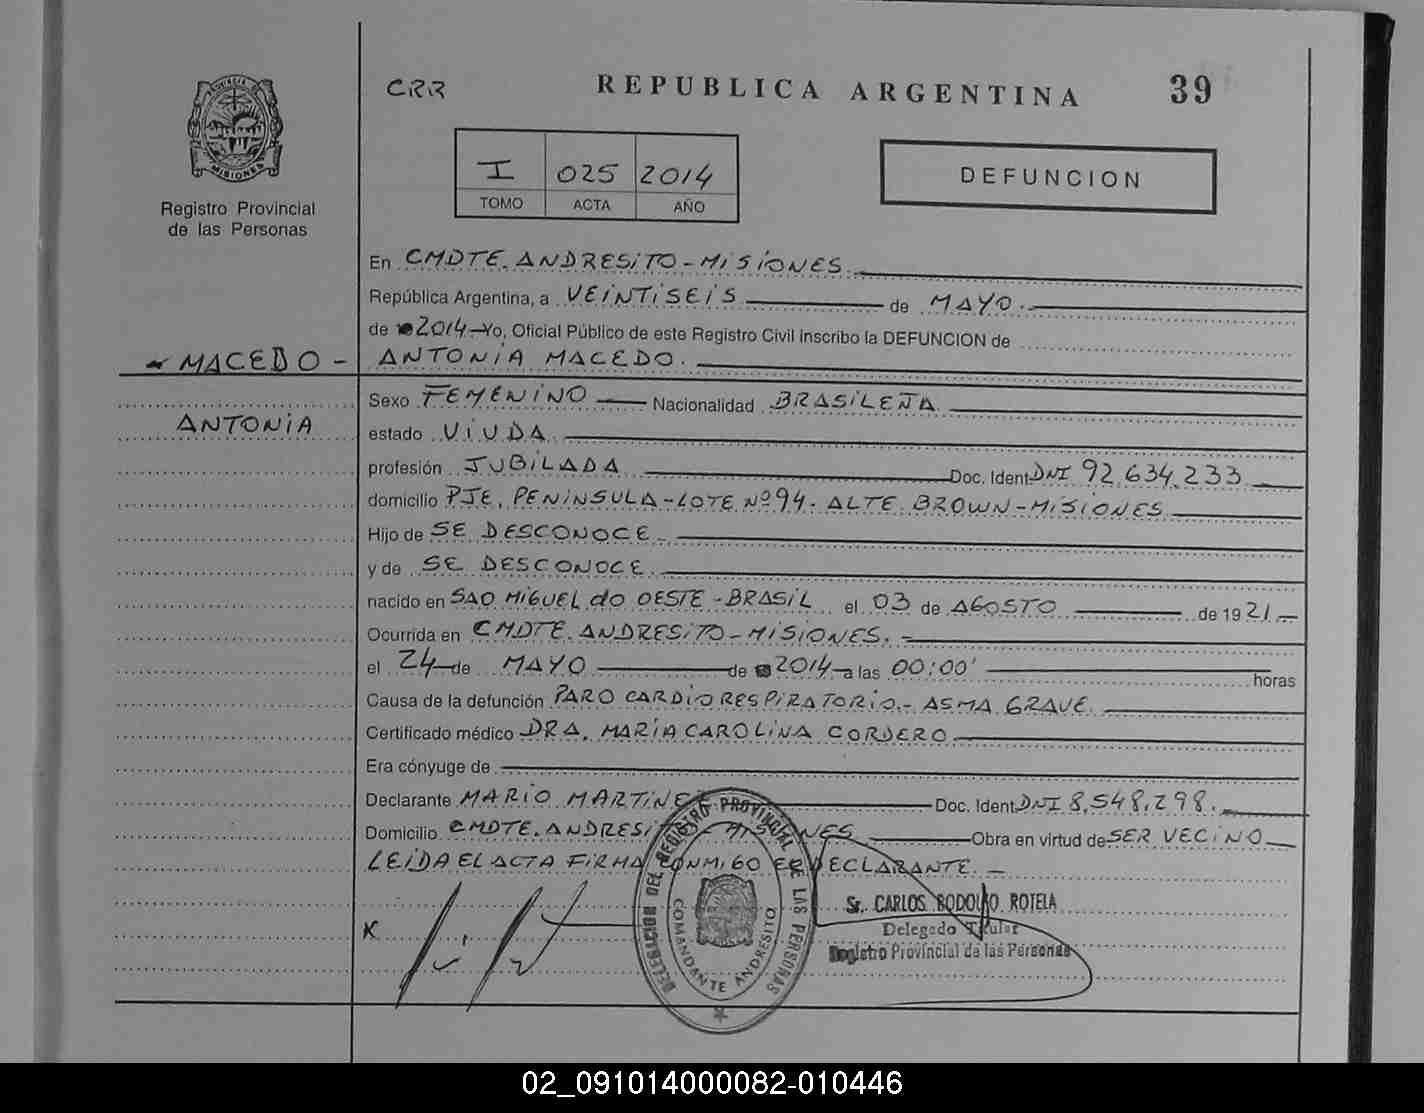 PROVINCIA DE
MISIONES
Registro Provincial
de las Personas
CRR
REPUBLICA ARGENTINA
39
I 025 2014
TOMO ACTA AÑO
DEFUNCION
En CMDTE. ANDRESITO - MISIONES.
República Argentina, a VEINTISEIS de MAYO.
de 2014 Yo, Oficial Público de este Registro Civil inscribo la DEFUNCION de
MACEDO - ANTONIA MACEDO.
Sexo FEMENINO Nacionalidad BRASILEÑA
ANTONIA
estado VIUDA.
profesión JUBILADA Doc. Ident DNI 92.634.233
domicilio PJE. PENINSULA - LOTE Nº 94. ALTE. BROWN - MISIONES
Hijo de SE DESCONOCE -
y de SE DESCONOCE.
nacido en SAO MIGUEL do OESTE - BRASIL el 03 de AGOSTO de 1921.-
Ocurrida en CMDTE. ANDRESITO - MISIONES. -
el 24 de MAYO de 2014 a las 00:00' horas
Causa de la defunción PARO CARDIORESPIRATORIO.- ASMA GRAVE.
Certificado médico DRA. MARIA CAROLINA CORDERO.
Era cónyuge de
Declarante MARIO MARTINEZ Doc. Ident DNI 8.548.298.
Domicilio CMDTE. ANDRESITO - MISIONES Obra en virtud de SER VECINO
LEIDA EL ACTA FIRMA CONMIGO EL DECLARANTE. -
DELEGACION DEL REGISTRO PROVINCIAL DE LAS PERSONAS
COMANDANTE ANDRESITO
Sr. CARLOS RODOLFO ROTELA
Delegado Titular
Registro Provincial de las Personas
02_091014000082-010446